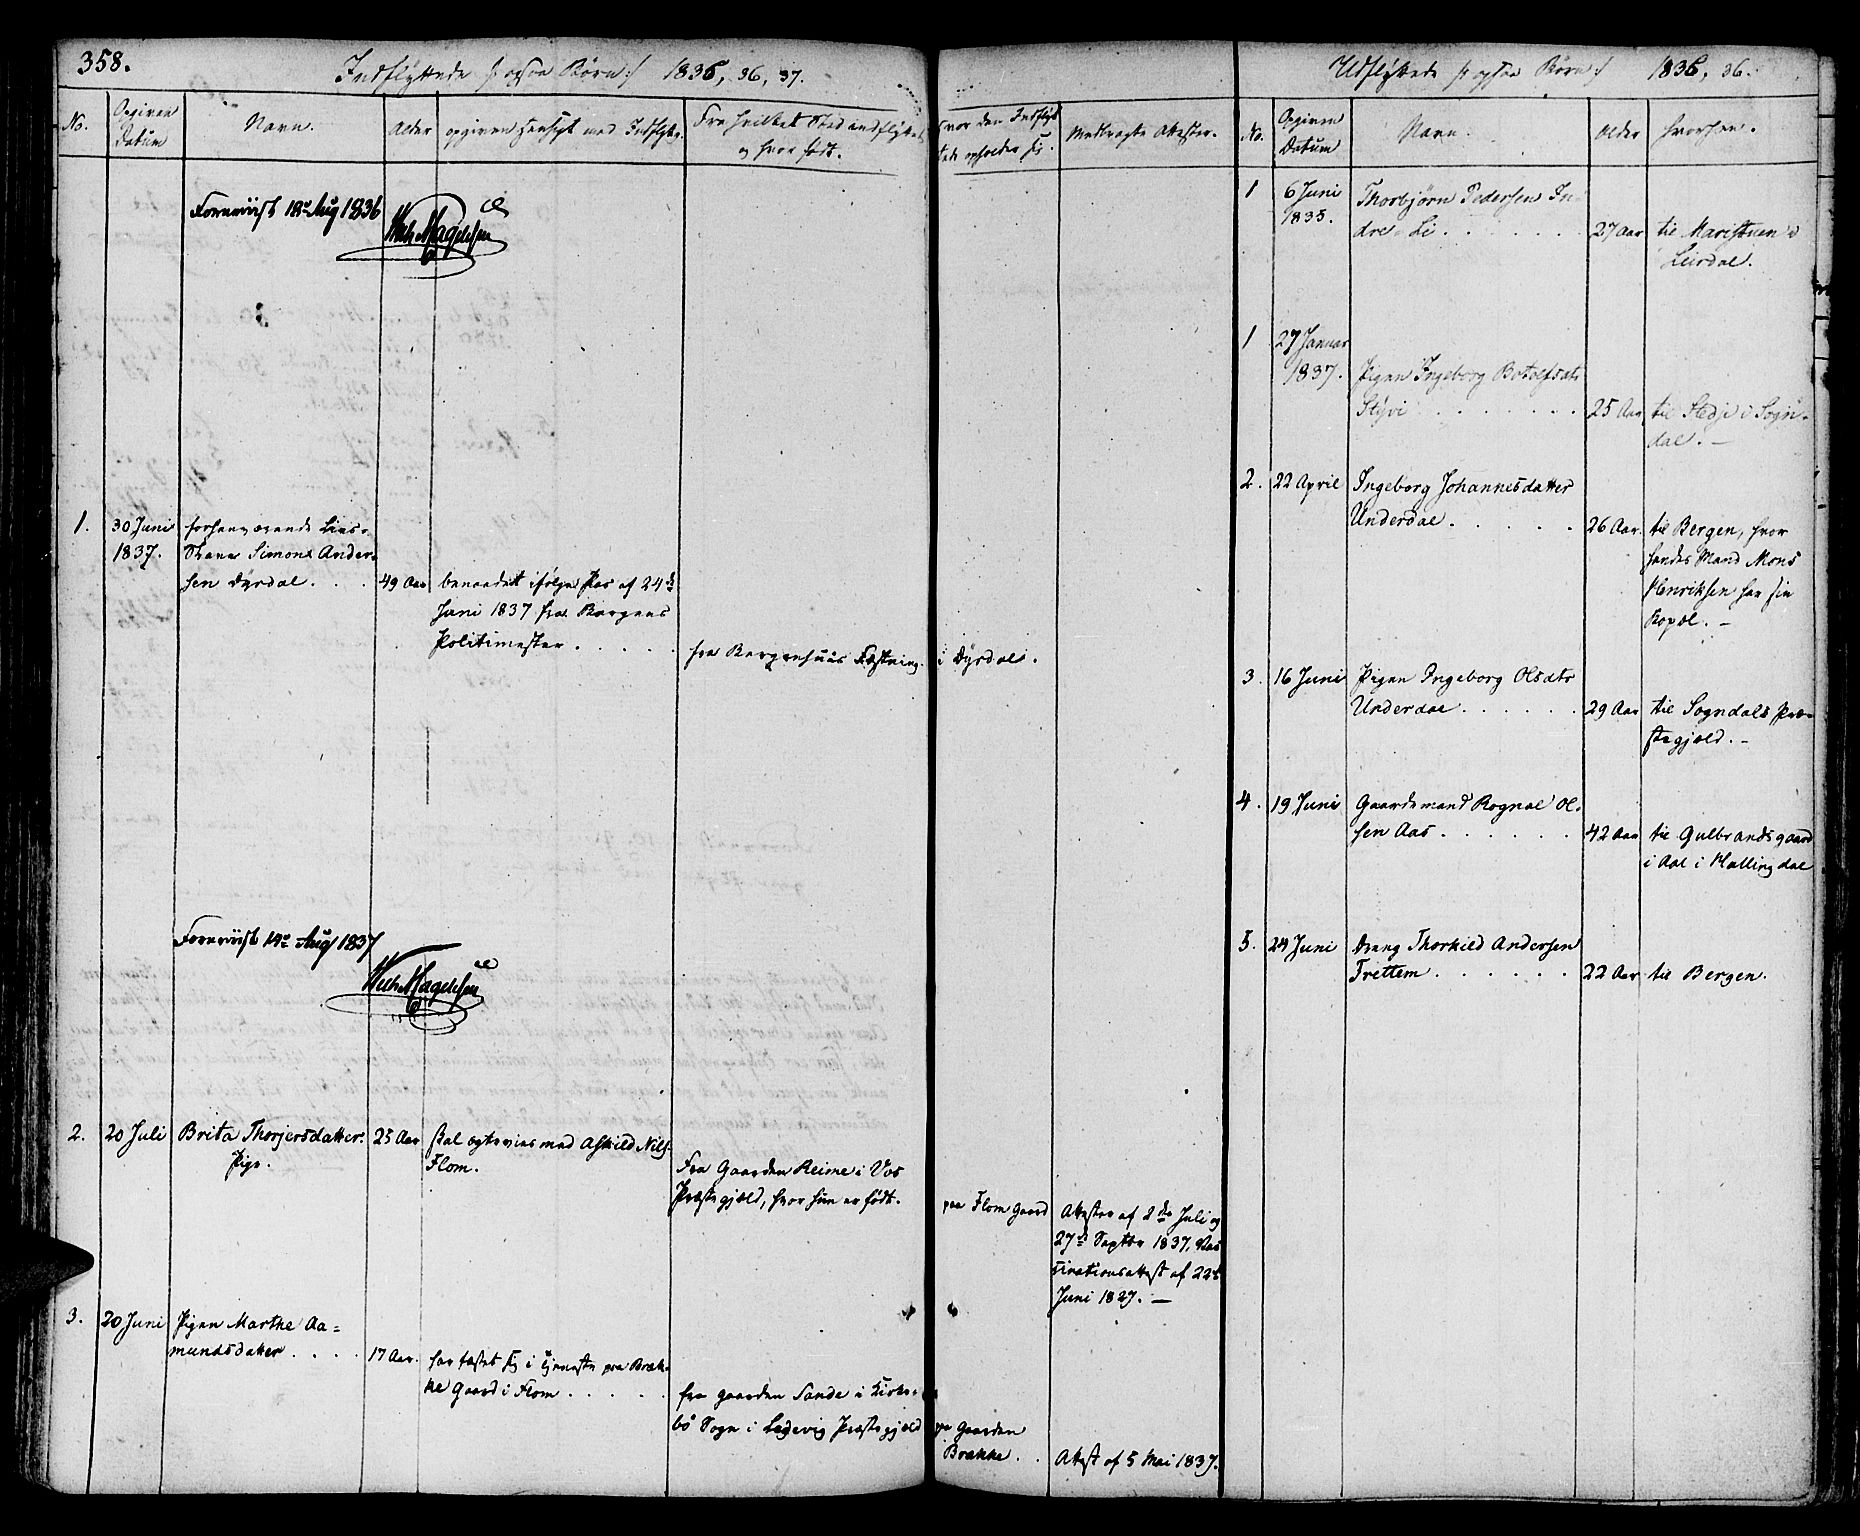 358.
Indflyttede /: ogsaa Børn :/ 1835, 36, 37.
No.
Opgiven Datum
Navn.
Alder
opgiven Hensigt med Indflytn.
Fra hvilket Sted indflyttet
og hvor født.
Hvor den Indflyt
tede opholder sig.
Medbragte Attester.
Fremviist 18de Aug 1836
Wilh. Magelssen
1.
30 Juni
1837.
forhenværende Lieds-
Simon Ander-
sen Dyrdal . . .
49 Aar
benaadet ifølge Pas af 24de
Juni 1837 fra Bergens
Politimester . . . . .
fra Bergenhuus Fæstning.
i Dyrdal.
Fremviist 14de Aug 1837
Wilh. Magelssen
2.
20 Juli
Brita Thorjersdatter.
Pige.
25 Aar
skal ægtevies med Askild Nils.
Flom.
Fra Gaarden Reime i Vos
Præstegjæld, hvor hun er født.
paa Flom Gaard
Attester af 2de Juli og
27de Septbr 1837, Vac-
cinationsattest af 22de
Juni 1827. —
3.
20 Juni
Pigen Marthe Aa=
mundsdatter . . . .
17 Aar.
har fæstet sig i Tjeneste paa Bræk-
ke Gaard i Flom . . . . .
fra gaarden Sande i Kirke-
bø Sogn i Ladevig Præstegjæld
paa Gaarden
Brække . .
Attest af 5 Mai 1837.
Udflyttede /: ogsaa Børn :/ 1835, 36.
No.
Opgiven
Datum
Navn.
Alder
hvorhen.
1
6 Juni
1835.
Thorbjørn Pedersen In
dre-Li . . . . . .
27 Aar
til Maristuen i
Leirdal.
1
27 Januar
1837.
Pigen Ingeborg Botolfsdtr
Styvi . . . . . . .
25 Aar
til Stedje i Sogn-
dal. —
2.
22 April
Ingeborg Johannesdatter
Underdal . . . . .
26 Aar.
til Bergen, hvor
hendes Mand Mons
Henriksen har sin
Bopæl. —
3.
16 Juni
Pigen Ingeborg Olsdtr
Underdal . . . . . .
29 Aar
til Sogndals Præ-
stegjæld. —
4.
19 Juni
Gaardsmand Rognal Ol-
sen Aas . . . . . .
42 Aar
til Gulbrandsgaard
i Aal i Hallingdal
5.
24 Juni
Dreng Thorkild Andersen
Frettem . . . . . .
22 Aar
til Bergen.